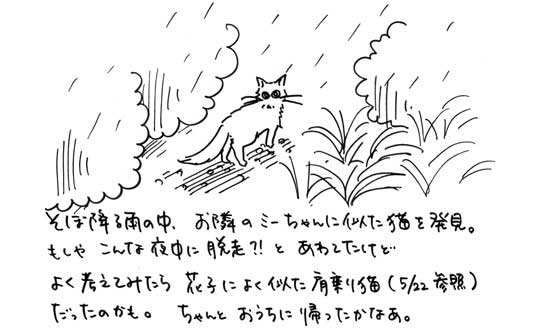 そぼ降る雨の中、お隣のミーちゃんに似た猫を発見。
もしや こんな夜中に脱走?! と あわてたけど…
よく考えてみたら 花子によく似た肩乗り猫(5/22 参照)
だったのかも。 ちゃんと おうちに 帰ったかなあ。